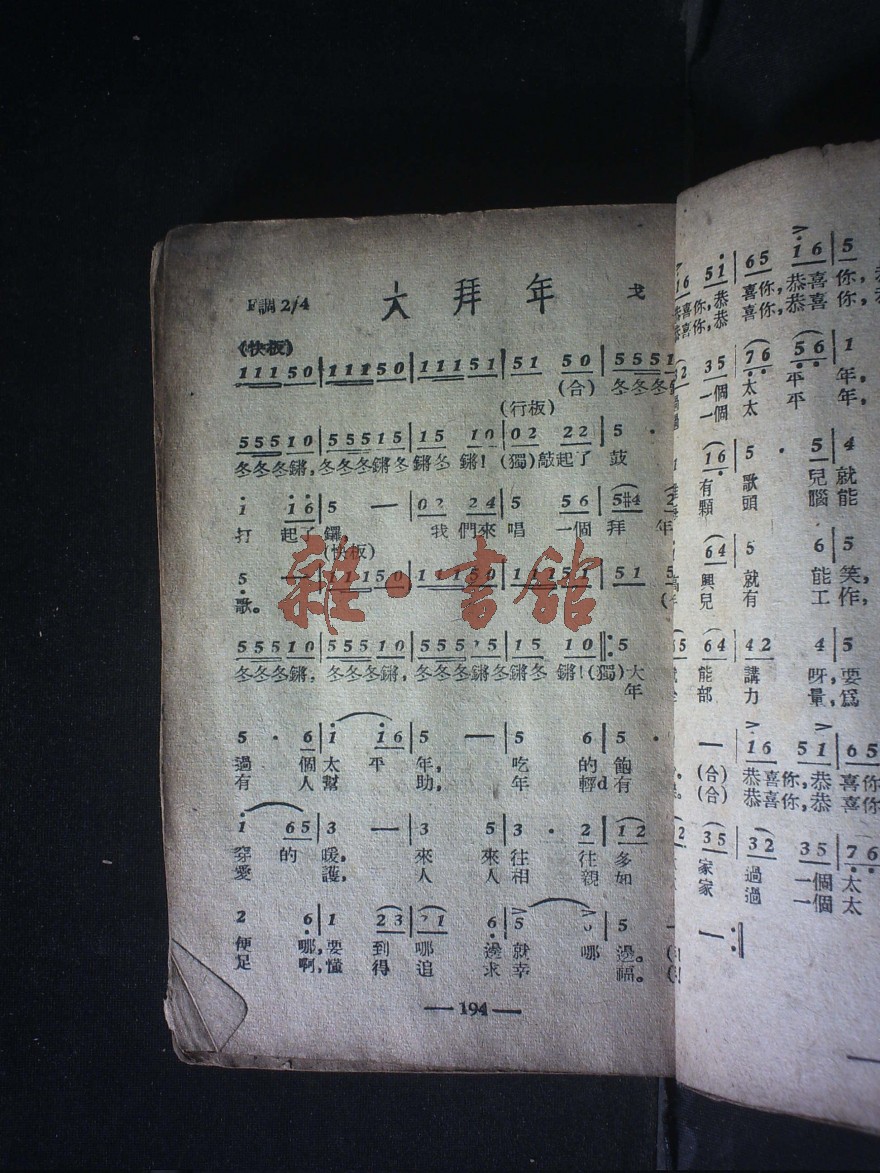 F調 2/4 大拜年 戈
(快板)
1 1 1 5 0 | 1 1 1 5 0 | 1 1 1 5 1 | 5 1 5 0 | 5 5 5 1
(合) 冬冬冬
(行板)
5 5 5 1 0 | 5 5 5 1 5 | 1 5 1 0 | 0 2 2 2 | 5 ·
冬冬冬鏘,冬冬冬鏘冬鏘冬 鏘! (獨)敲起了 鼓
i i 6 | 5 — | 0 2 2 4 | 5 5 6 | 5 #4 2
打 起了鑼 我們來唱 一個 拜 年
(快板)
5 — | 1 1 1 5 0 | 1 1 1 5 0 | 1 1 1 5 1 | 5 1 5
歌。
5 5 5 1 0 | 5 5 5 1 0 | 5 5 5 1 5 | 1 5 1 0 |: 5
冬冬冬鏘,冬冬冬鏘,冬冬冬鏘冬鏘冬 鏘!(獨)大
年
5 · 6 | i i 6 | 5 — | 5 6 | 5 ·
過 個太 平 年, 吃 的飽
有 人幫 助, 年 輕d有
i 6 5 | 3 — | 3 5 | 3 · 2 | 1 2
穿 的 暖, 來 來往 往多
愛 護, 人 人相 親如
2 6 | 1 2 3 | 2 1 6 | 5 5 | 5
便 哪,要 到 哪 邊就 哪 邊。
足 啊,懂 得 追 求幸 福。
— 194 —
1 6 5 i | 6 5 i 6 | 5
恭喜你,恭 喜你,恭喜 你,
恭喜你,恭 喜你,恭喜 你,
2 3 5 | 7 6 5 6 | 1
一個 太 平 年,
一個 太 平 年,
1 6 | 5 · 5 | 4
有 歌 兒 就
顆 頭 腦 能
6 4 | 5 6 | 5
興 就 能 笑,
兒 有 工 作,
6 4 | 4 2 4 | 5
能 講 呀,要
部 力 量,爲
— | 1 6 5 1 | 6 5
(合) 恭喜你,恭 喜你
(合) 恭喜你,恭 喜你
2 3 5 | 3 2 3 5 | 7 6
家 過 一個 太
家 過 一個 太
— :|
雜·書館